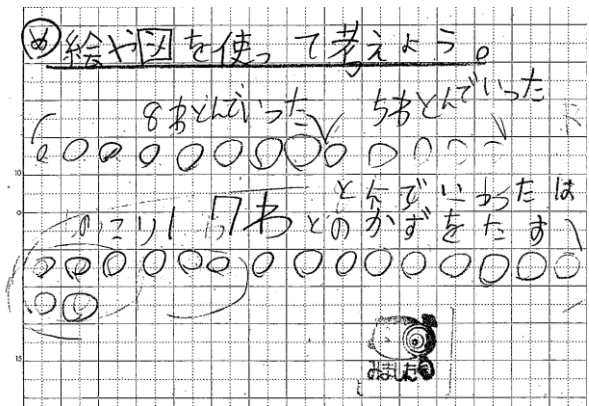 め 絵や図を使って考えよう。
8わとんでいった 5わとんでいった
10
とんでいったは
のこり 17わ とのかずをたす
15
みました